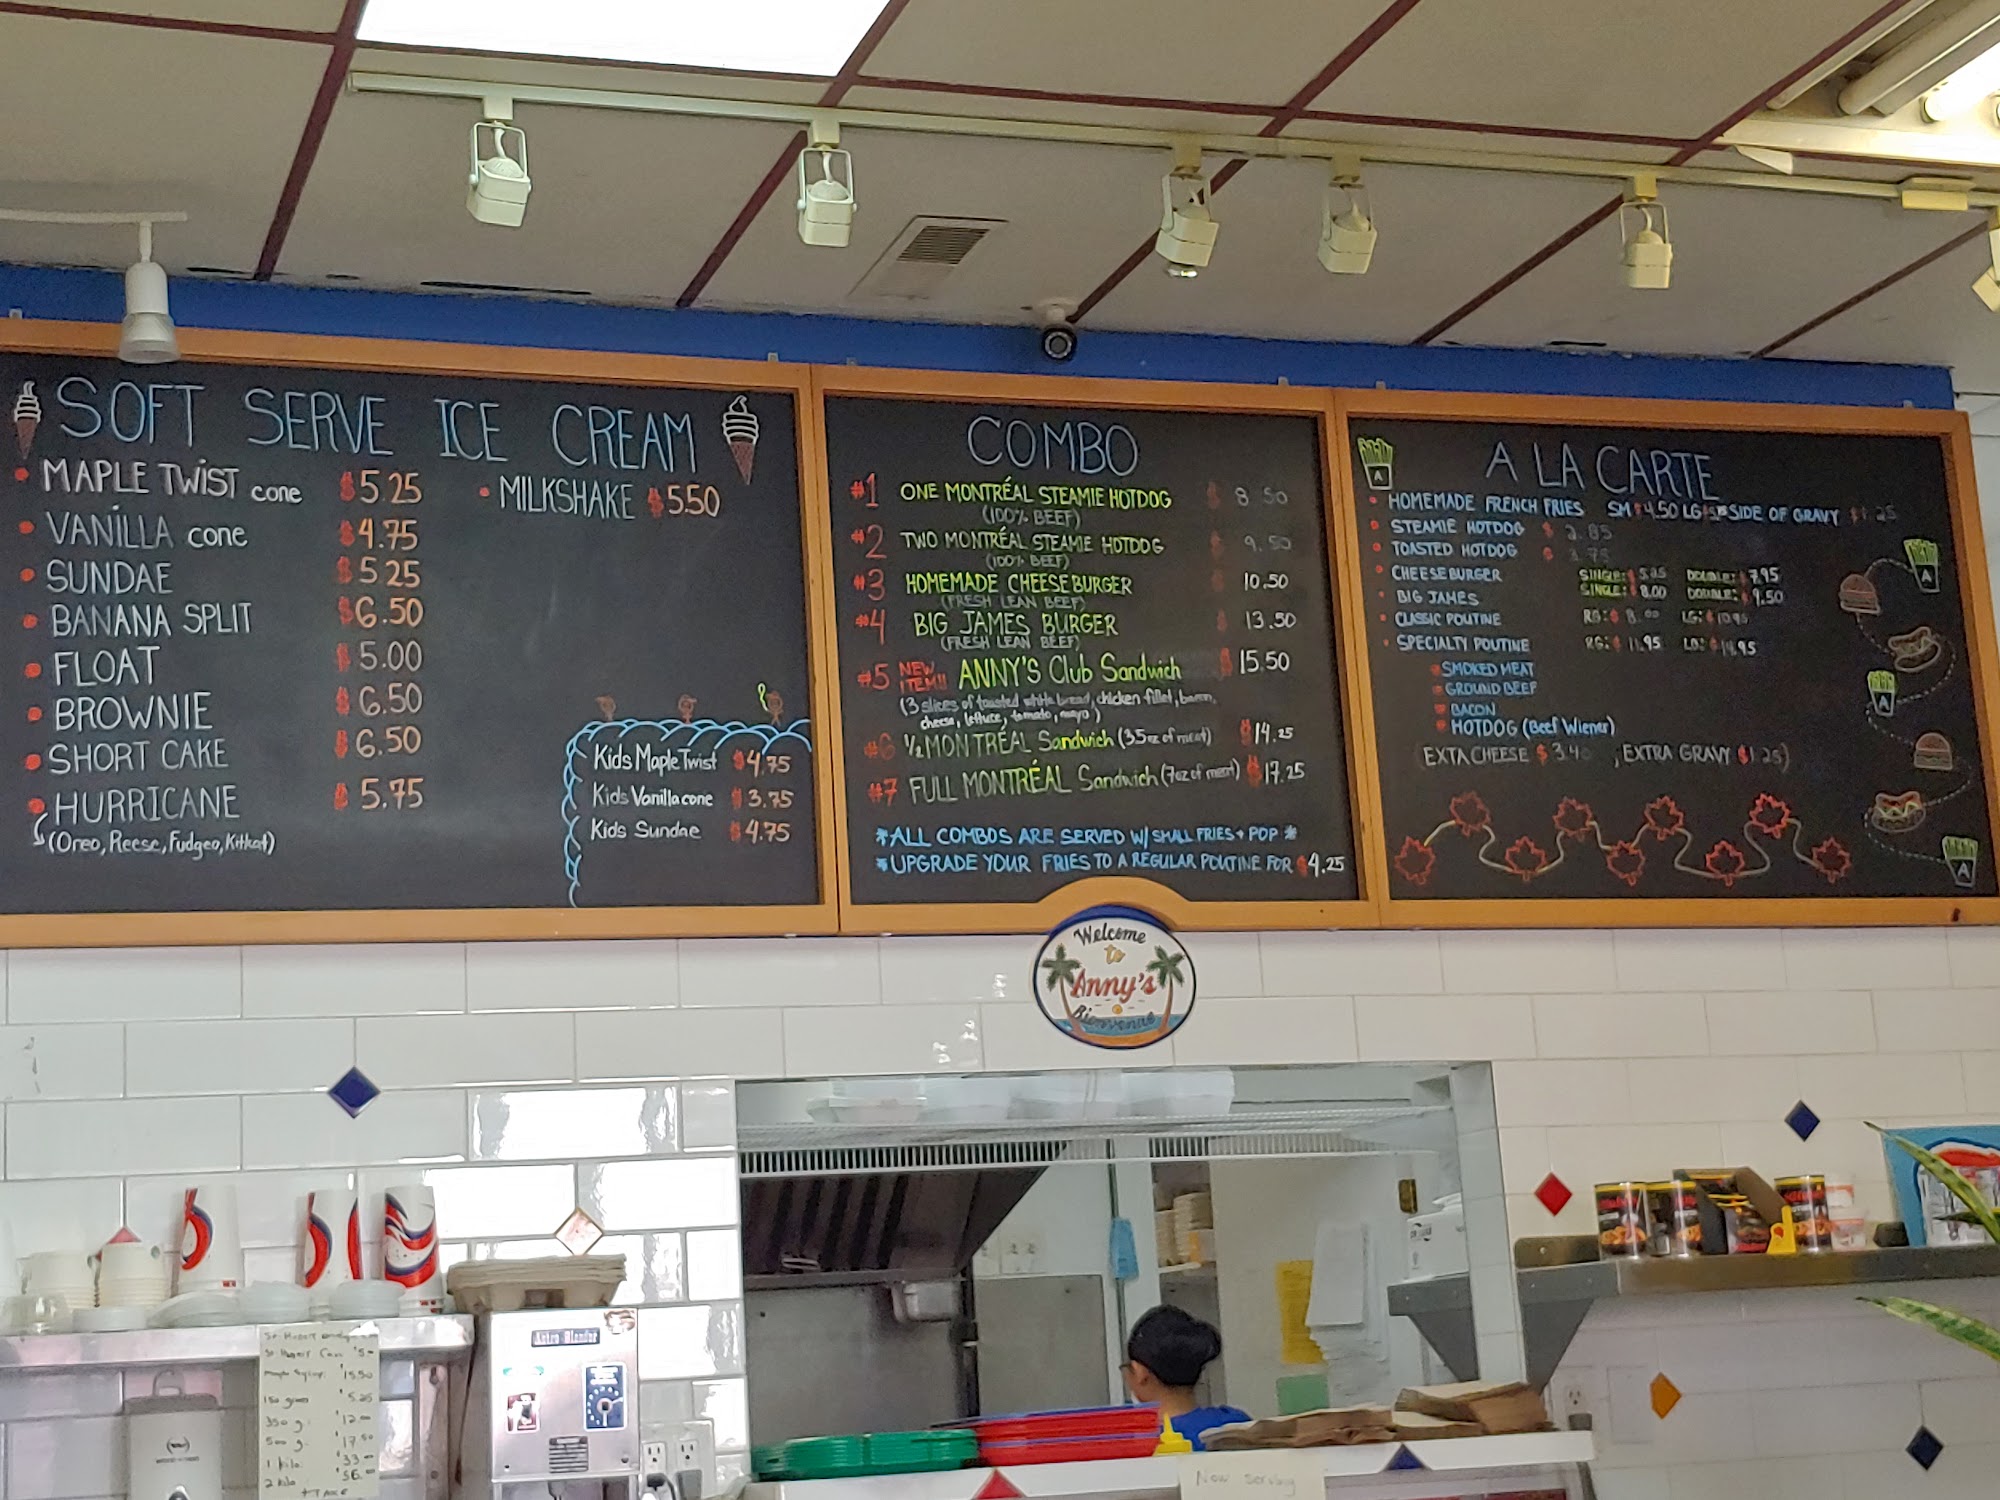 SOFT SERVE ICE CREAM
• MAPLE TWIST cone $5.25
• VANILLA cone $4.75
• SUNDAE $5.25
• BANANA SPLIT $6.50
• FLOAT $5.00
• BROWNIE $6.50
• SHORT CAKE $6.50
• HURRICANE $5.75
(Oreo, Reese, Fudgeo, Kitkat)
• MILKSHAKE $5.50
Kids Maple Twist $4.75
Kids Vanilla cone $3.75
Kids Sundae $4.75
COMBO
#1 ONE MONTRÉAL STEAMIE HOTDOG $8.50
(100% BEEF)
#2 TWO MONTRÉAL STEAMIE HOTDOG $9.50
(100% BEEF)
#3 HOMEMADE CHEESEBURGER $10.50
(FRESH LEAN BEEF)
#4 BIG JAMES BURGER $13.50
(FRESH LEAN BEEF)
#5 NEW ITEM!! ANNY'S Club Sandwich $15.50
(3 slices of toasted white bread, chicken fillet, bacon,
cheese, lettuce, tomato, mayo)
#6 1/2 MONTRÉAL Sandwich (3.5oz of meat) $14.25
#7 FULL MONTRÉAL Sandwich (7oz of meat) $17.25
*ALL COMBOS ARE SERVED W/ SMALL FRIES + POP *
*UPGRADE YOUR FRIES TO A REGULAR POUTINE FOR $4.25
A LA CARTE
• HOMEMADE FRENCH FRIES SM $4.50 LG SIDE OF GRAVY $1.25
• STEAMIE HOTDOG $2.85
• TOASTED HOTDOG $3.75
• CHEESEBURGER SINGLE: DOUBLE: $7.95
• BIG JAMES SINGLE: $8.00 DOUBLE: $9.50
• CLASSIC POUTINE RG: $8.00 LG: $10.95
• SPECIALTY POUTINE RG: $11.95 LG: $14.95
SMOKED MEAT
GROUND BEEF
BACON
HOTDOG (Beef Wiener)
(EXTA CHEESE $3.40, EXTRA GRAVY $1.25)
A
A
A
A
Welcome
to
Anny's
Bienvenue
Astro Blender
$15.50
150 gram $5.25
350 g. $12.00
500 g. $17.50
1 kilo: $33.00
2 kilo: $56.00
Now serving